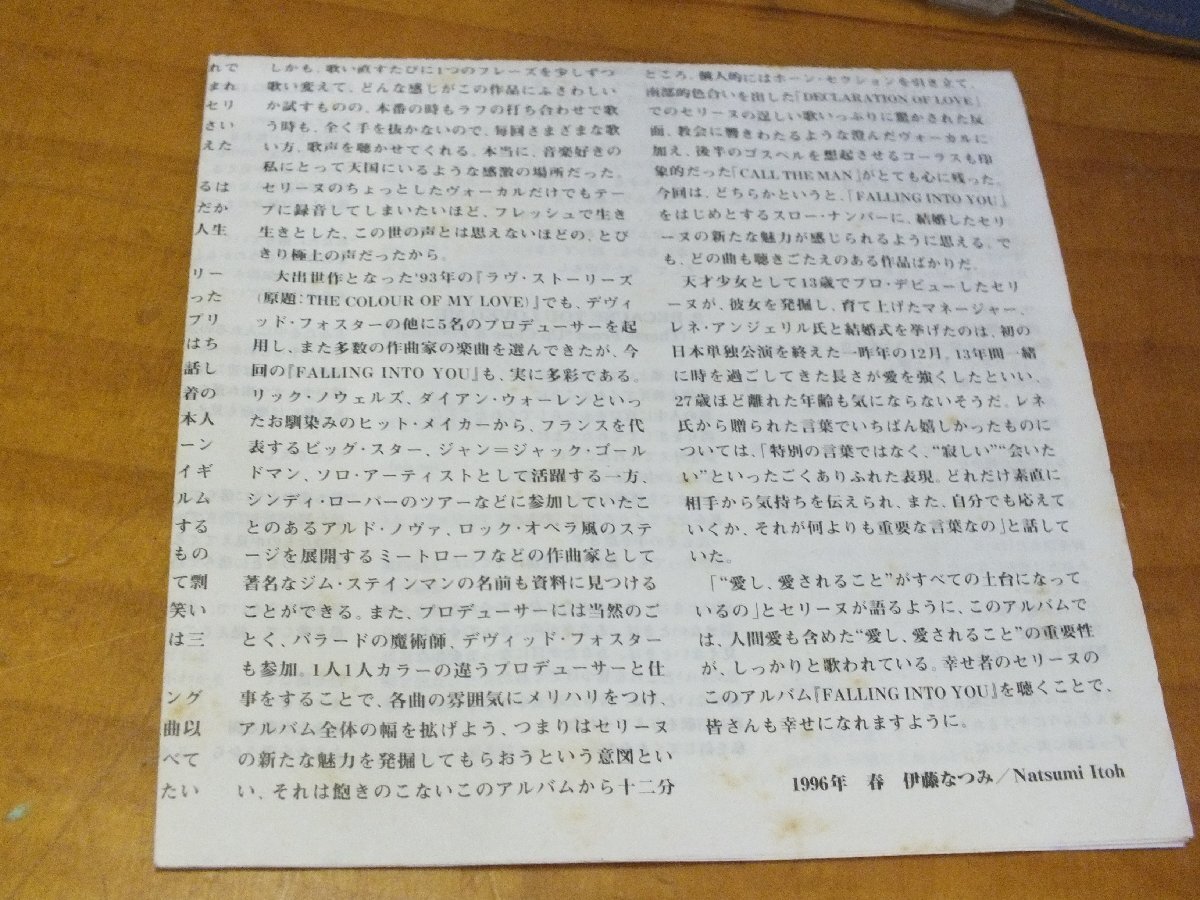 れで
まれ
セリ
さい
えた
るは
だか
人生
リー
った
プリ
はち
話し
着の
本人
ーン
イギ
ルム
する
もの
て剽
笑い
は三
ング
曲以
べて
たい
しかも、歌い直すたびに1つのフレーズを少しずつ
歌い変えて、どんな感じがこの作品にふさわしい
か試すものの、本番の時もラフの打ち合わせで歌
う時も、全く手を抜かないので、毎回さまざまな歌
い方、歌声を聴かせてくれる。本当に、音楽好きの
私にとって天国にいるような感激の場所だった。
セリーヌのちょっとしたヴォーカルだけでもテー
プに録音してしまいたいほど、フレッシュで生き
生きとした、この世の声とは思えないほどの、とび
きり極上の声だったから。
大出世作となった'93年の『ラヴ・ストーリーズ
(原題：THE COLOUR OF MY LOVE)』でも、デヴィ
ッド・フォスターの他に5名のプロデューサーを起
用し、また多数の作曲家の楽曲を選んできたが、今
回の『FALLING INTO YOU』も、実に多彩である。
リック・ノウェルズ、ダイアン・ウォーレンといっ
たお馴染みのヒット・メイカーから、フランスを代
表するビッグ・スター、ジャン＝ジャック・ゴール
ドマン、ソロ・アーティストとして活躍する一方、
シンディ・ローパーのツアーなどに参加していたこ
とのあるアルド・ノヴァ、ロック・オペラ風のステ
ージを展開するミートローフなどの作曲家として
著名なジム・ステインマンの名前も資料に見つける
ことができる。また、プロデューサーには当然のご
とく、バラードの魔術師、デヴィッド・フォスター
も参加。1人1人カラーの違うプロデューサーと仕
事をすることで、各曲の雰囲気にメリハリをつけ、
アルバム全体の幅を拡げよう、つまりはセリーヌ
の新たな魅力を発掘してもらおうという意図とい
い、それは飽きのこないこのアルバムから十二分
ところ、個人的にはホーン・セクションを引き立て、
南部的色合いを出した「DECLARATION OF LOVE」
でのセリーヌの逞しい歌いっぷりに驚かされた反
面、教会に響きわたるような澄んだヴォーカルに
加え、後半のゴスペルを想起させるコーラスも印
象的だった「CALL THE MAN」がとても心に残った。
今回は、どちらかというと、「FALLING INTO YOU」
をはじめとするスロー・ナンバーに、結婚したセリ
ーヌの新たな魅力が感じられるように思える。で
も、どの曲も聴きごたえのある作品ばかりだ。
天才少女として13歳でプロ・デビューしたセリ
ーヌが、彼女を発掘し、育て上げたマネージャー、
レネ・アンジェリル氏と結婚式を挙げたのは、初の
日本単独公演を終えた一昨年の12月。13年間一緒
に時を過ごしてきた長さが愛を強くしたといい、
27歳ほど離れた年齢も気にならないそうだ。レネ
氏から贈られた言葉でいちばん嬉しかったものに
ついては、「特別の言葉ではなく、“寂しい”“会いた
い”といったごくありふれた表現。どれだけ素直に
相手から気持ちを伝えられ、また、自分でも応えて
いくか、それが何よりも重要な言葉なの」と話して
いた。
「“愛し、愛されること”がすべての土台になって
いるの」とセリーヌが語るように、このアルバムで
は、人間愛も含めた“愛し、愛されること”の重要性
が、しっかりと歌われている。幸せ者のセリーヌの
このアルバム『FALLING INTO YOU』を聴くことで、
皆さんも幸せになれますように。
1996年 春 伊藤なつみ／Natsumi Itoh